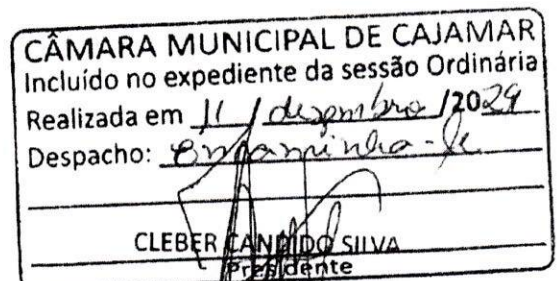 CÂMARA MUNICIPAL DE CAJAMAR
Incluído no expediente da sessão Ordinária
Realizada em 11 / dezembro /2024
Despacho: Encaminha-se
CLEBER CANDIDO SILVA
Presidente